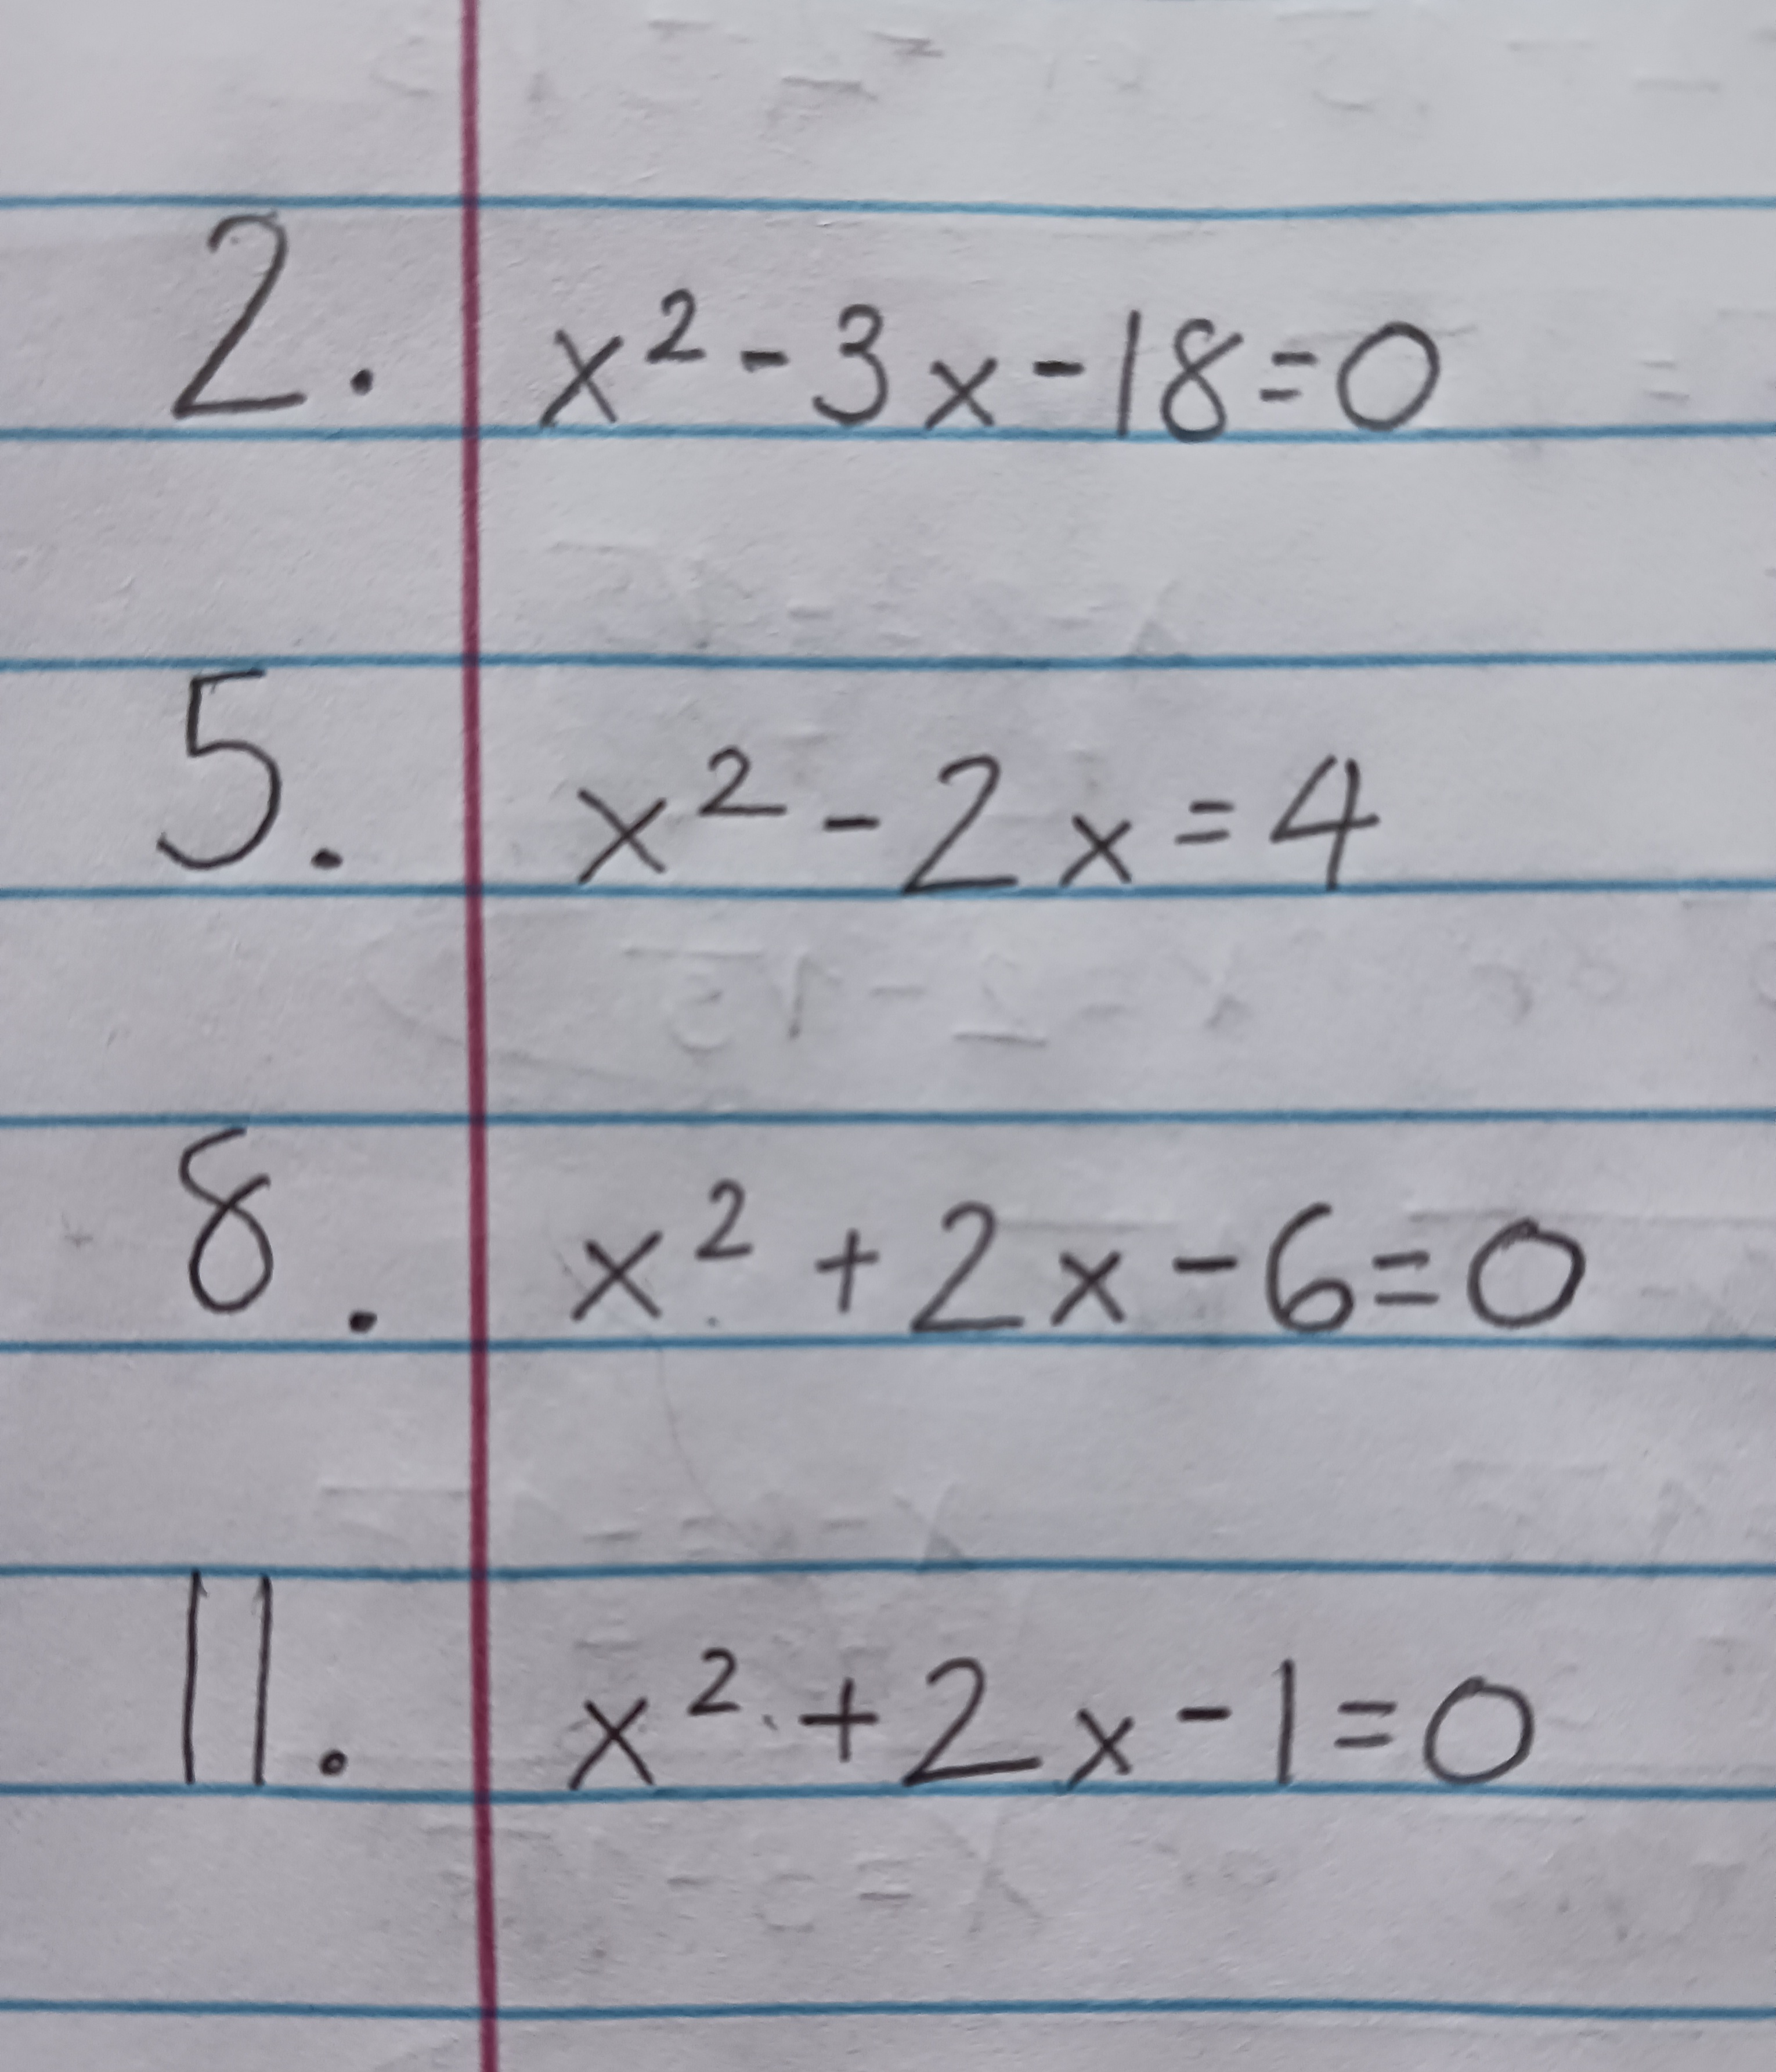 2. x² - 3x - 18 = 0
5. x² - 2x = 4
8. x² + 2x - 6 = 0
11. x² + 2x - 1 = 0